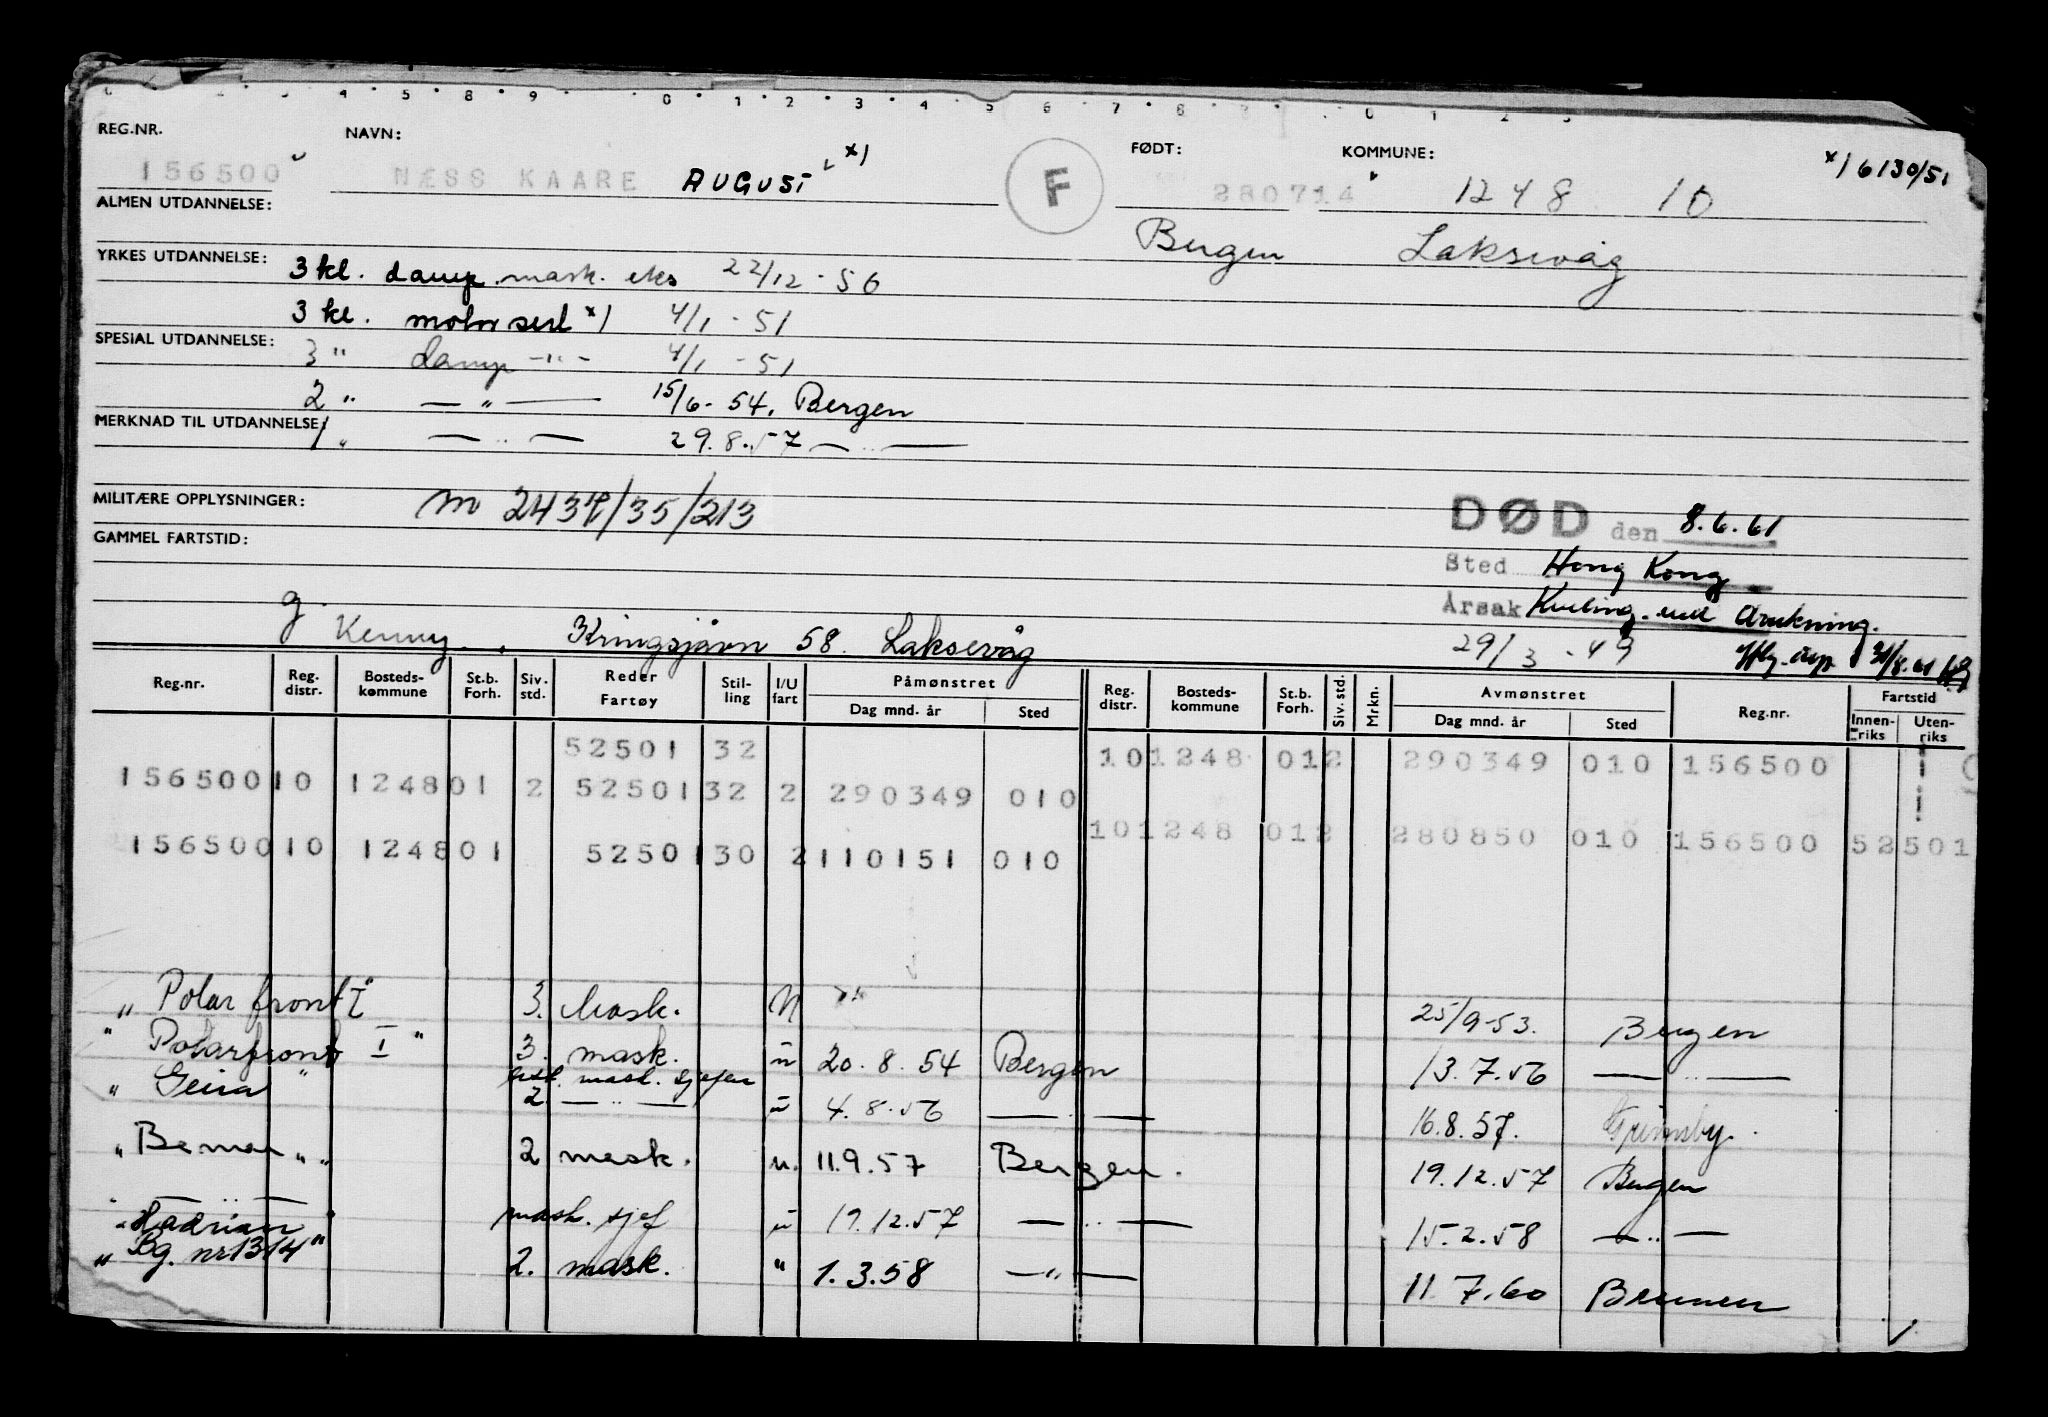 REG.NR. NAVN: FØDT: KOMMUNE: x) 6130/51
156500 NÆSS KAARE AUGUST x) F 280714 1248 10
ALMEN UTDANNELSE: Bergen Laksevåg
YRKES UTDANNELSE: 3 kl. damp. mask. eks 22/12 - 56
3 kl. motor sert x) 4/1 - 51
SPESIAL UTDANNELSE: 3 " damp -"- 4/1 - 51
2 " — " — 15/6 - 54. Bergen
MERKNAD TIL UTDANNELSE 1 " — " — 29.8.57 — " —
MILITÆRE OPPLYSNINGER: m 2437/35/213
DØD den 8.6.61
GAMMEL FARTSTID:
Sted Hong Kong
Årsak Kvelning ved drukning.
g. Kenny. Kringsjåvn 58. Laksevåg 29/3 - 49
Reg.nr. Reg. distr. Bosteds- kommune St.b. Forh. Siv. std. Reder Fartøy Stil- ling I/U fart Påmønstret Dag mnd. år Sted Reg. distr. Bosteds- kommune St.b. Forh. Siv. std. Mrkn. Avmønstret Dag mnd. år Sted Reg.nr. Fartstid Innen- riks Uten- riks
52501 32 10 1248 01 2 290349 010 156500
156500 10 1248 01 2 52501 32 2 290349 010
10 1248 01 2 280850 010 156500 52501
156500 10 1248 01 52501 30 2 110151 010
" Polarfront I" 3. Mask. U 25/9-53. Bergen
" Polarfront I " 3. mask. u 20.8.54 Bergen 13.7.56 — " —
" Geira " ass. mask. sjefen
2. — " — u 4.8.56 — " — 16.8.57. Grimsby.
" Bemar " " 2 mask. u. 11.9.57 Bergen. 19.12.57 Bergen
" — " — mask. sjef u 19.12.57 — " — 15.2.58 — " —
" Hadrian "
" Bg. nr 1314" 2. mask. " 1.3.58 — " — 11.7.60 Bremen